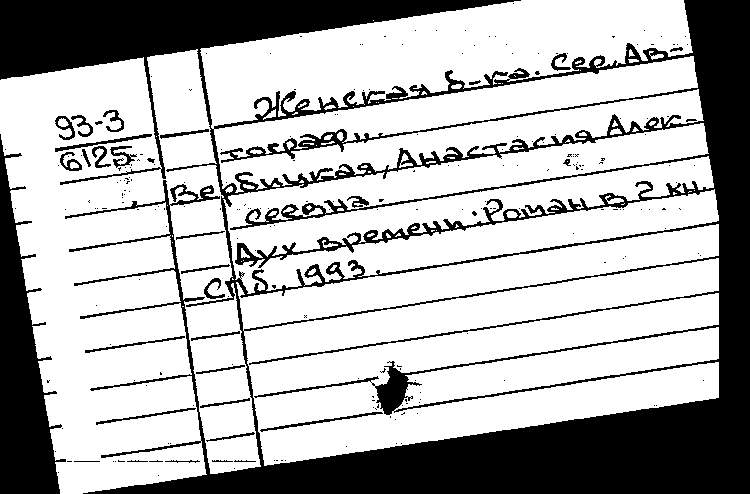 93-3
6125.
Женская б-ка. Сер. „Ав-
тограф„.
Вербицкая, Анастасия Алек-
сеевна.
Дух времени: Роман в 2 кн.
-СПб., 1993.